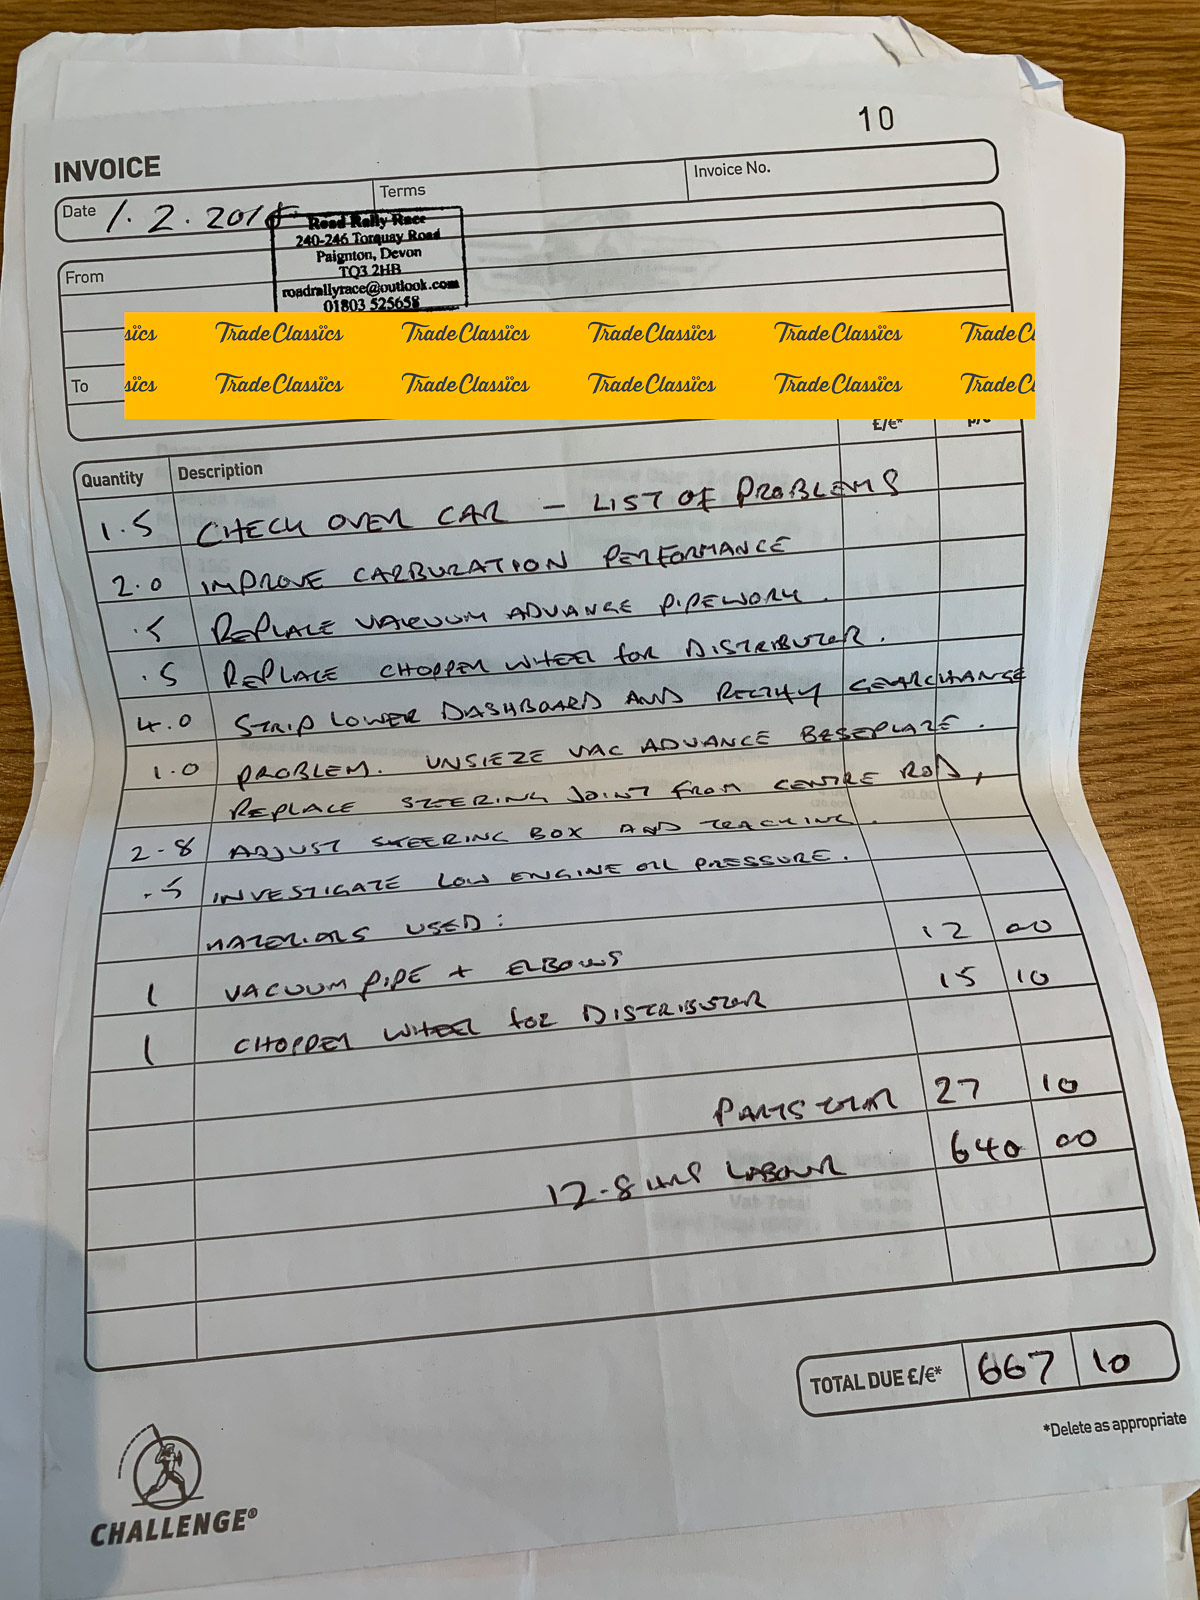 10
INVOICE
Date 1.2.201
Terms
Invoice No.
Road Rally Race
240-246 Torquay Road
Paignton, Devon
TQ3 2HB
roadrallyrace@outlook.com
01803 525658
From
sics Trade Classics Trade Classics Trade Classics Trade Classics Trade Cl
To
sics Trade Classics Trade Classics Trade Classics Trade Classics Trade Cl
£/€* p/c
Quantity Description
1.5 CHECK OVER CAR - LIST OF PROBLEMS
2.0 IMPROVE CARBURATION PERFORMANCE
.5 REPLACE VACUUM ADVANCE PIPEWORK.
.5 REPLACE CHOPPER WHEEL FOR DISTRIBUTOR.
4.0 STRIP LOWER DASHBOARD AND RECTIFY GEARCHANGE
1.0 PROBLEM. UNSIEZE VAC ADVANCE BASEPLATE.
REPLACE STEERING JOINT FROM CENTRE ROD,
2-8 ADJUST STEERING BOX AND TRACKING.
.5 INVESTIGATE LOW ENGINE OIL PRESSURE.
MATERIALS USED:
1 VACUUM PIPE + ELBOWS 12 00
1 CHOPPER WHEEL FOR DISTRIBUTOR 15 10
PARTS TOTAL 27 10
12-8 HRS LABOUR 640 00
TOTAL DUE £/€* 667 10
*Delete as appropriate
CHALLENGE®